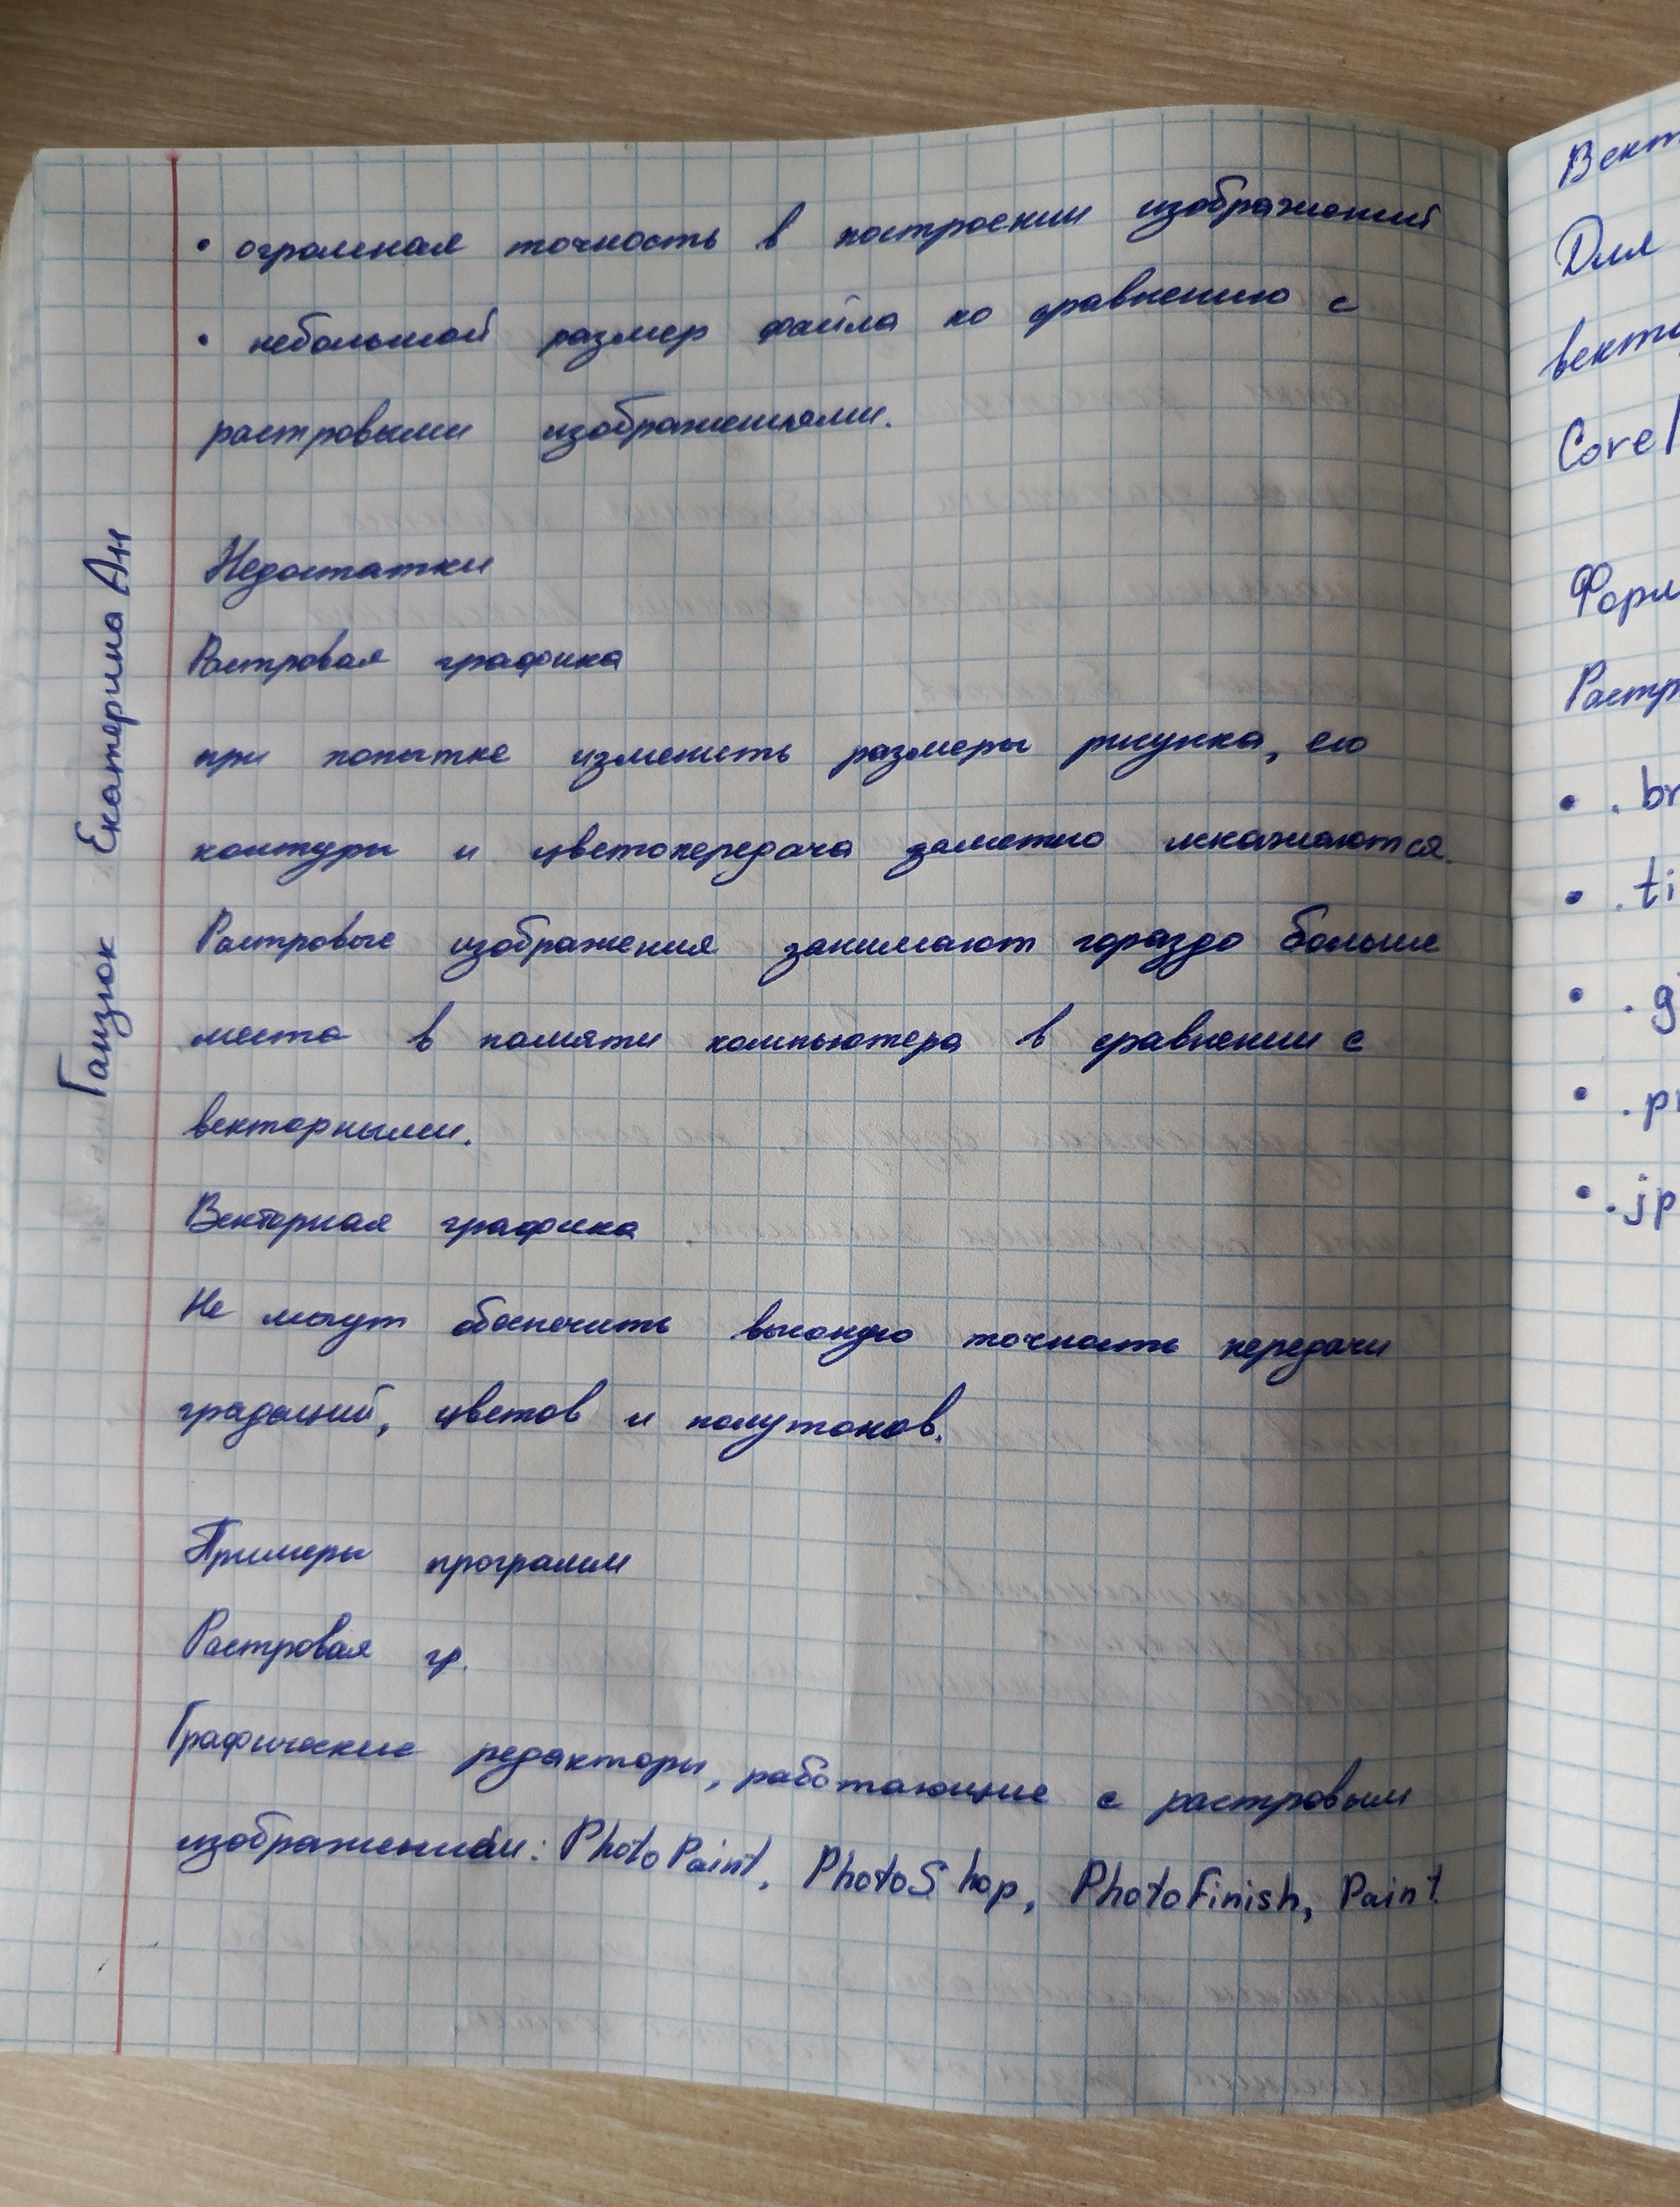 • огромная точность в построении изображений
• небольшой размер файла по сравнению с
растровыми изображениями.
Недостатки
Растровая графика
при попытке изменить размеры рисунка, его
контуры и цветопередача заметно искажаются.
Растровые изображения занимают гораздо больше
места в памяти компьютера в сравнении с
векторными.
Векторная графика
Не могут обеспечить высокую точность передачи
градаций, цветов и полутонов.
Примеры программ
Растровая гр.
Графические редакторы, работающие с растровым
изображением: PhotoPaint, PhotoShop, PhotoFinish, Paint
Ганзюк Екатерина Ан
Вект
Для
векто
Corel
Форм
Растр
• .br
• .ti
• .g
• .p
• .jp